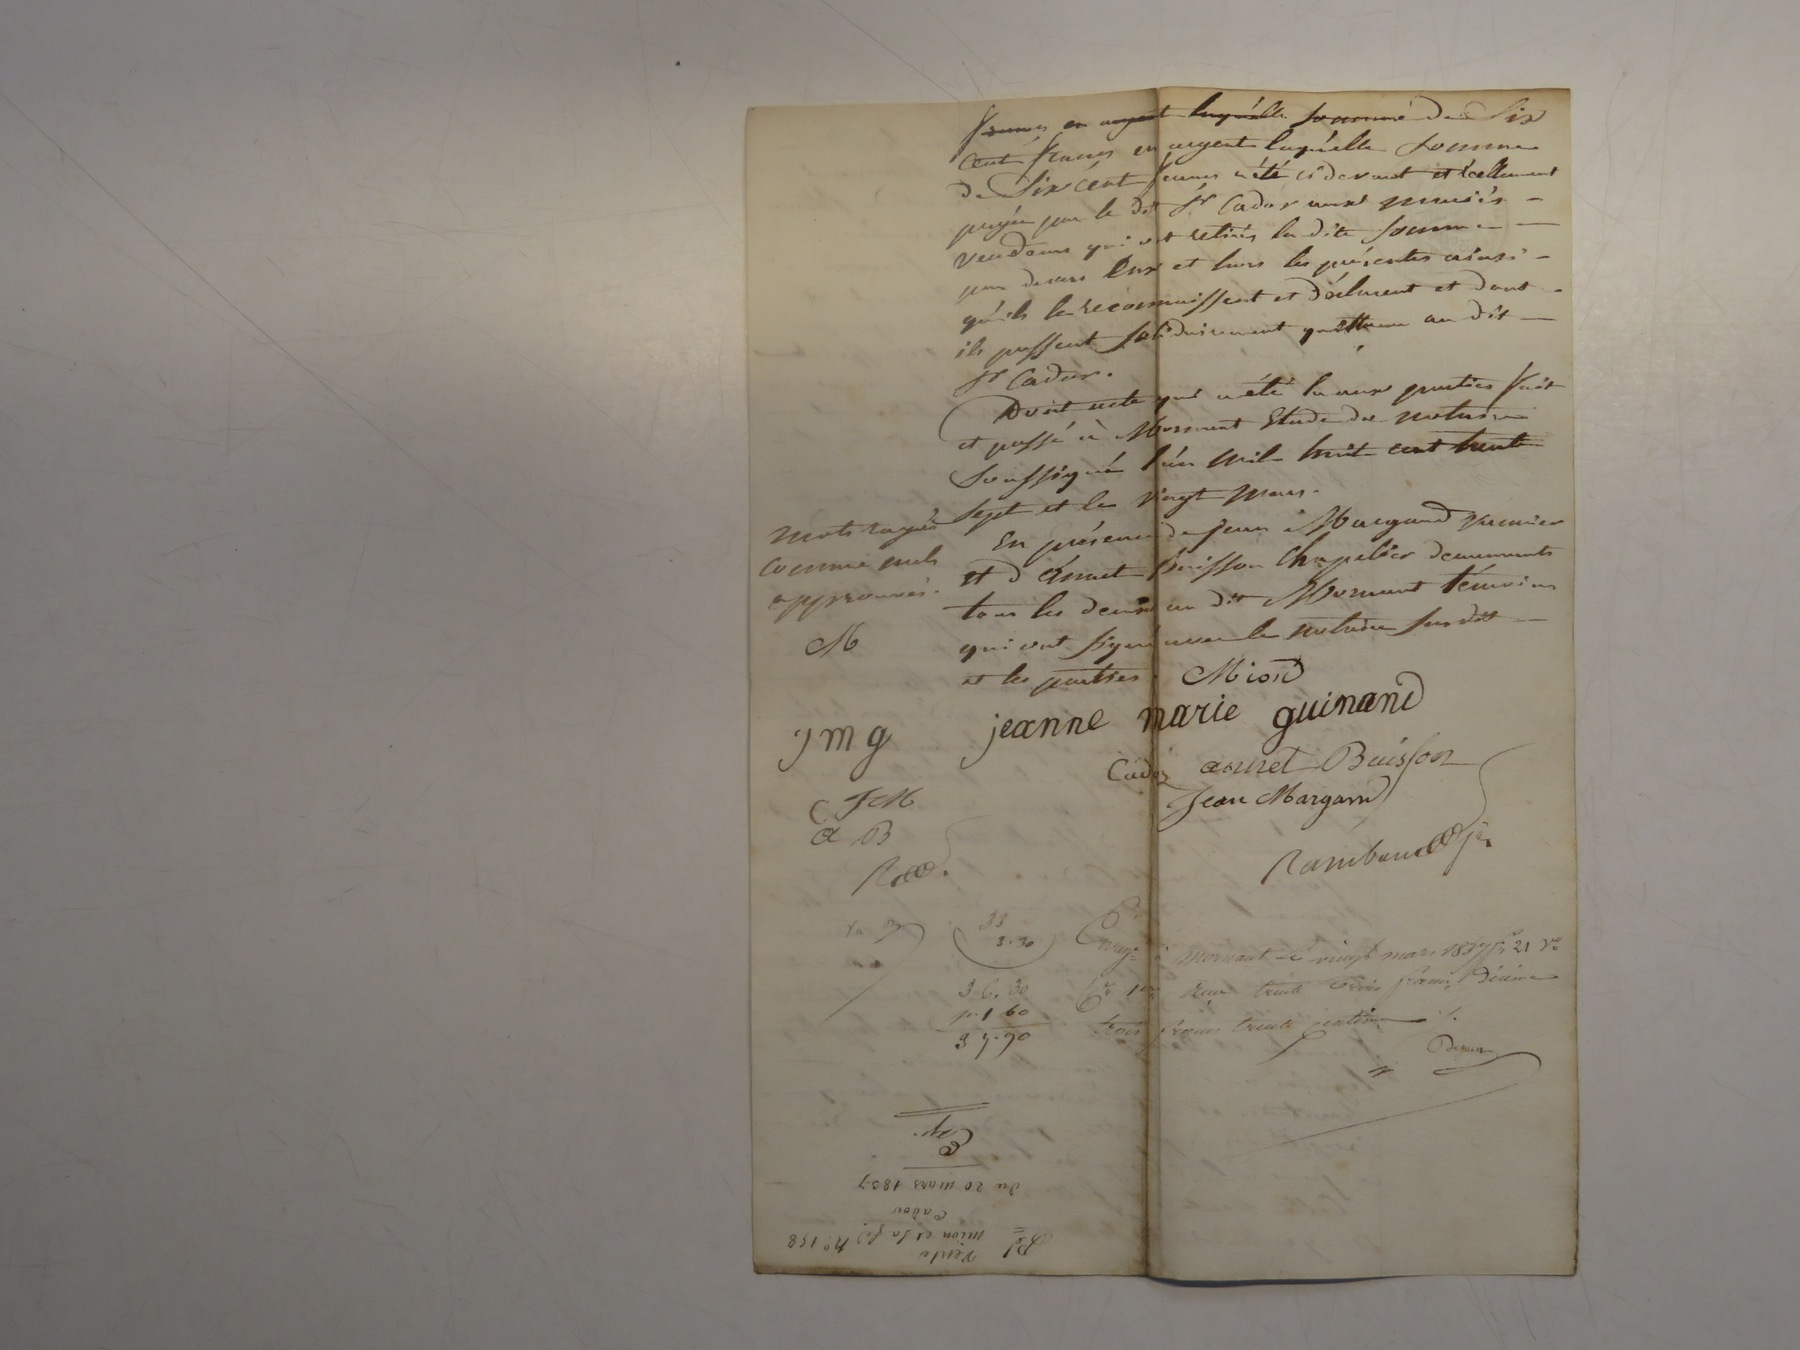 francs en argent laquelle somme de Six
cent francs en argent laquelle somme
de Six cent francs a été cidevant et réellement
payée par le dit Sr Cador aux mariés
vendeurs qui ont retirés la dite somme
par devers Eux et hors les présentes ainsi
qu'ils le reconnaissent et déclarent et dont
ils passent solidairement quittance au dit
Sr Cador.
Dont acte qui a été lu aux parties fait
et passé à Mornant Etude du notaire
Soussigné l'an mil huit cent trente
Sept et le vingt mars.
En présence de jean Margand
et d'Annet Buisson Chapelier demeurants
tous les deux au dit Mornant témoins
qui ont signé avec le notaire susdit
et les parties. Miond
mots rayés
comme nuls
approuvés.
M
jmg jeanne marie guinand
Cador annet Buisson
Jean Margand
C JM
a B
R
Rambaud
33
3.30
36.30
1 60
37.90
Enregé à Mornant le vingt mars 1837 fo 21 Vo
Ce 1ere Reçu trente trois francs, Décime
trois francs trente centimes
No 158
Vente
mion et sa fe
Cador
du 20 mars 1837